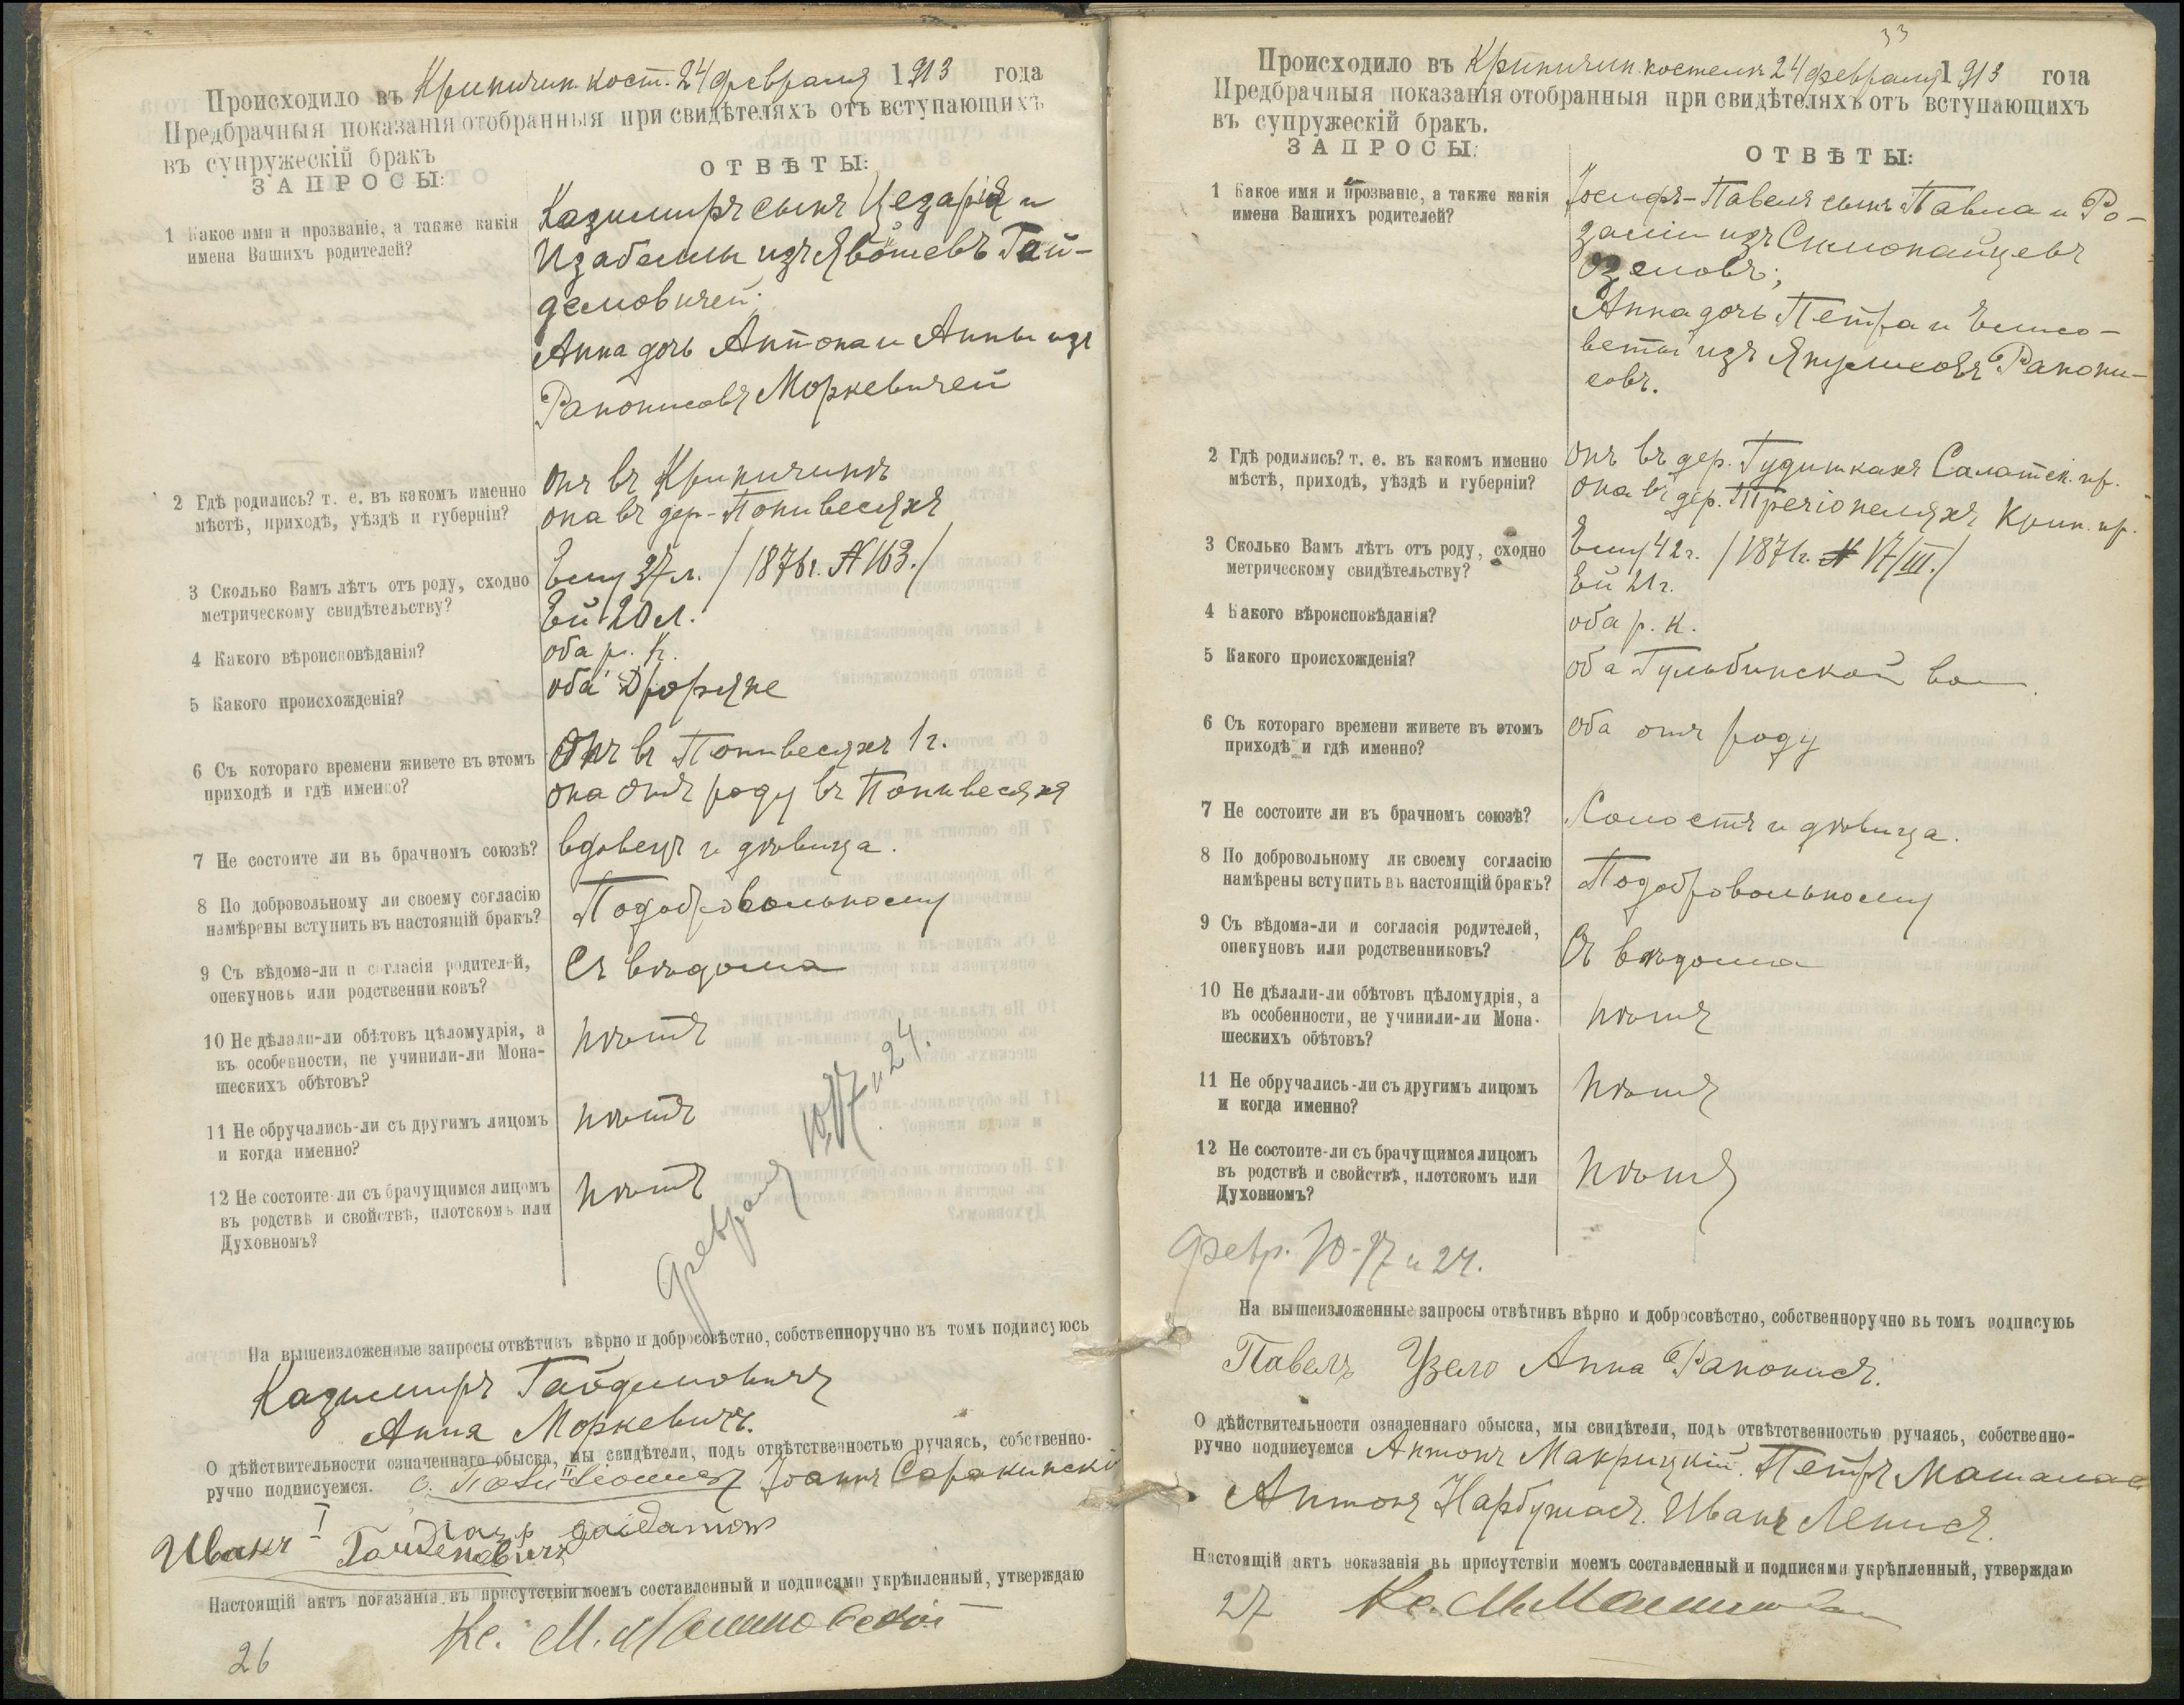 Происходило въ Крипичин. кост. 24 февраля 1913 года
Предбрачныя показанія отобранныя при свидѣтеляхъ отъ вступающихъ
въ супружескій бракъ
ЗАПРОСЫ:
ОТВѢТЫ:
1 Какое имя и прозваніе, а также какія
имена Вашихъ родителей?
Казимиръ сынъ Цезарія и
Изабеллы изъ Явошевъ Гай-
демовичей;
Анна дочь Антона и Анны изъ
Раконисовъ Моркевичей
2 Гдѣ родились? т. е. въ какомъ именно
мѣстѣ, приходѣ, уѣздѣ и губерніи?
Онъ въ Крипичинѣ
она въ дер. Понивесяхъ
3 Сколько Вамъ лѣтъ отъ роду, сходно
метрическому свидѣтельству?
Ему 37 л. / 1876 г. № 163. /
Ей 20 л.
4 Какого вѣроисповѣданія?
оба р. к.
5 Какого происхожденія?
оба Дворяне
6 Съ котораго времени живете въ этомъ
приходѣ и гдѣ именно?
Онъ въ Понивесяхъ 1 г.
она отъ роду въ Понивесяхъ
7 Не состоите ли въ брачномъ союзѣ?
вдовецъ и дѣвица.
8 По добровольному ли своему согласію
намѣрены вступить въ настоящій бракъ?
По добровольному
9 Съ вѣдома-ли и согласія родителей,
опекуновъ или родственниковъ?
Съ вѣдома
10 Не дѣлали-ли обѣтовъ цѣломудрія, а
въ особенности, не учинили-ли Мона-
шескихъ обѣтовъ?
нѣтъ
11 Не обручались-ли съ другимъ лицомъ
и когда именно?
нѣтъ
12 Не состоите-ли съ брачущимся лицомъ
въ родствѣ и свойствѣ, плотскомъ или
Духовномъ?
нѣтъ
Февраля 10, 17 и 24.
На вышеизложенные запросы отвѣтивъ вѣрно и добросовѣстно, собственноручно въ томъ подписуюсь
Казимиръ Гайдимовичъ
Анна Моркевичъ.
О дѣйствительности означеннаго обыска, мы свидѣтели, подъ отвѣтственностью ручаясь, собственно-
ручно подписуемся.
II
Іоаннъ
I
Иванъ
Настоящій актъ показанія въ присутствіи моемъ составленный и подписями укрѣпленный, утверждаю
Кс. М.
26
33
Происходило въ Крипичин. костелѣ 24 февраля 1913 года
Предбрачныя показанія отобранныя при свидѣтеляхъ отъ вступающихъ
въ супружескій бракъ.
ЗАПРОСЫ:
ОТВѢТЫ:
1 Какое имя и прозваніе, а также какія
имена Вашихъ родителей?
Іосифъ-Павелъ сынъ Павла и Ро-
заліи изъ
Анна дочь Петра и Елисо-
веты изъ Якулисовъ Ракони-
совъ.
2 Гдѣ родились? т. е. въ какомъ именно
мѣстѣ, приходѣ, уѣздѣ и губерніи?
Онъ въ дер. Гудишкахъ Салатск. пр.
Она въ дер. Крип. пр.
3 Сколько Вамъ лѣтъ отъ роду, сходно
метрическому свидѣтельству?
Ему 42 г. / 1871 г. 17/III. /
Ей 21 г.
4 Какого вѣроисповѣданія?
оба р. к.
5 Какого происхожденія?
оба Гульбинской вол.
6 Съ котораго времени живете въ этомъ
приходѣ и гдѣ именно?
Оба отъ роду
7 Не состоите ли въ брачномъ союзѣ?
Холостъ и дѣвица.
8 По добровольному ли своему согласію
намѣрены вступить въ настоящій бракъ?
По добровольному
9 Съ вѣдома-ли и согласія родителей,
опекуновъ или родственниковъ?
Съ вѣдома
10 Не дѣлали-ли обѣтовъ цѣломудрія, а
въ особенности, не учинили-ли Мона-
шескихъ обѣтовъ?
нѣтъ
11 Не обручались-ли съ другимъ лицомъ
и когда именно?
нѣтъ
12 Не состоите-ли съ брачущимся лицомъ
въ родствѣ и свойствѣ, плотскомъ или
Духовномъ?
нѣтъ
Февр. 10-17 и 24.
На вышеизложенные запросы отвѣтивъ вѣрно и добросовѣстно, собственноручно въ томъ подписуюь
Павелъ Узело Анна Раконисъ.
О дѣйствительности означеннаго обыска, мы свидѣтели, подъ отвѣтственностью ручаясь, собственно-
ручно подписуемся Антонъ Макрицкій. Петръ
Антонъ Нарбутасъ. Иванъ Ленисъ.
Настоящій актъ показанія въ присутствіи моемъ составленный и подписями укрѣпленный, утверждаю
27 Кс. М.